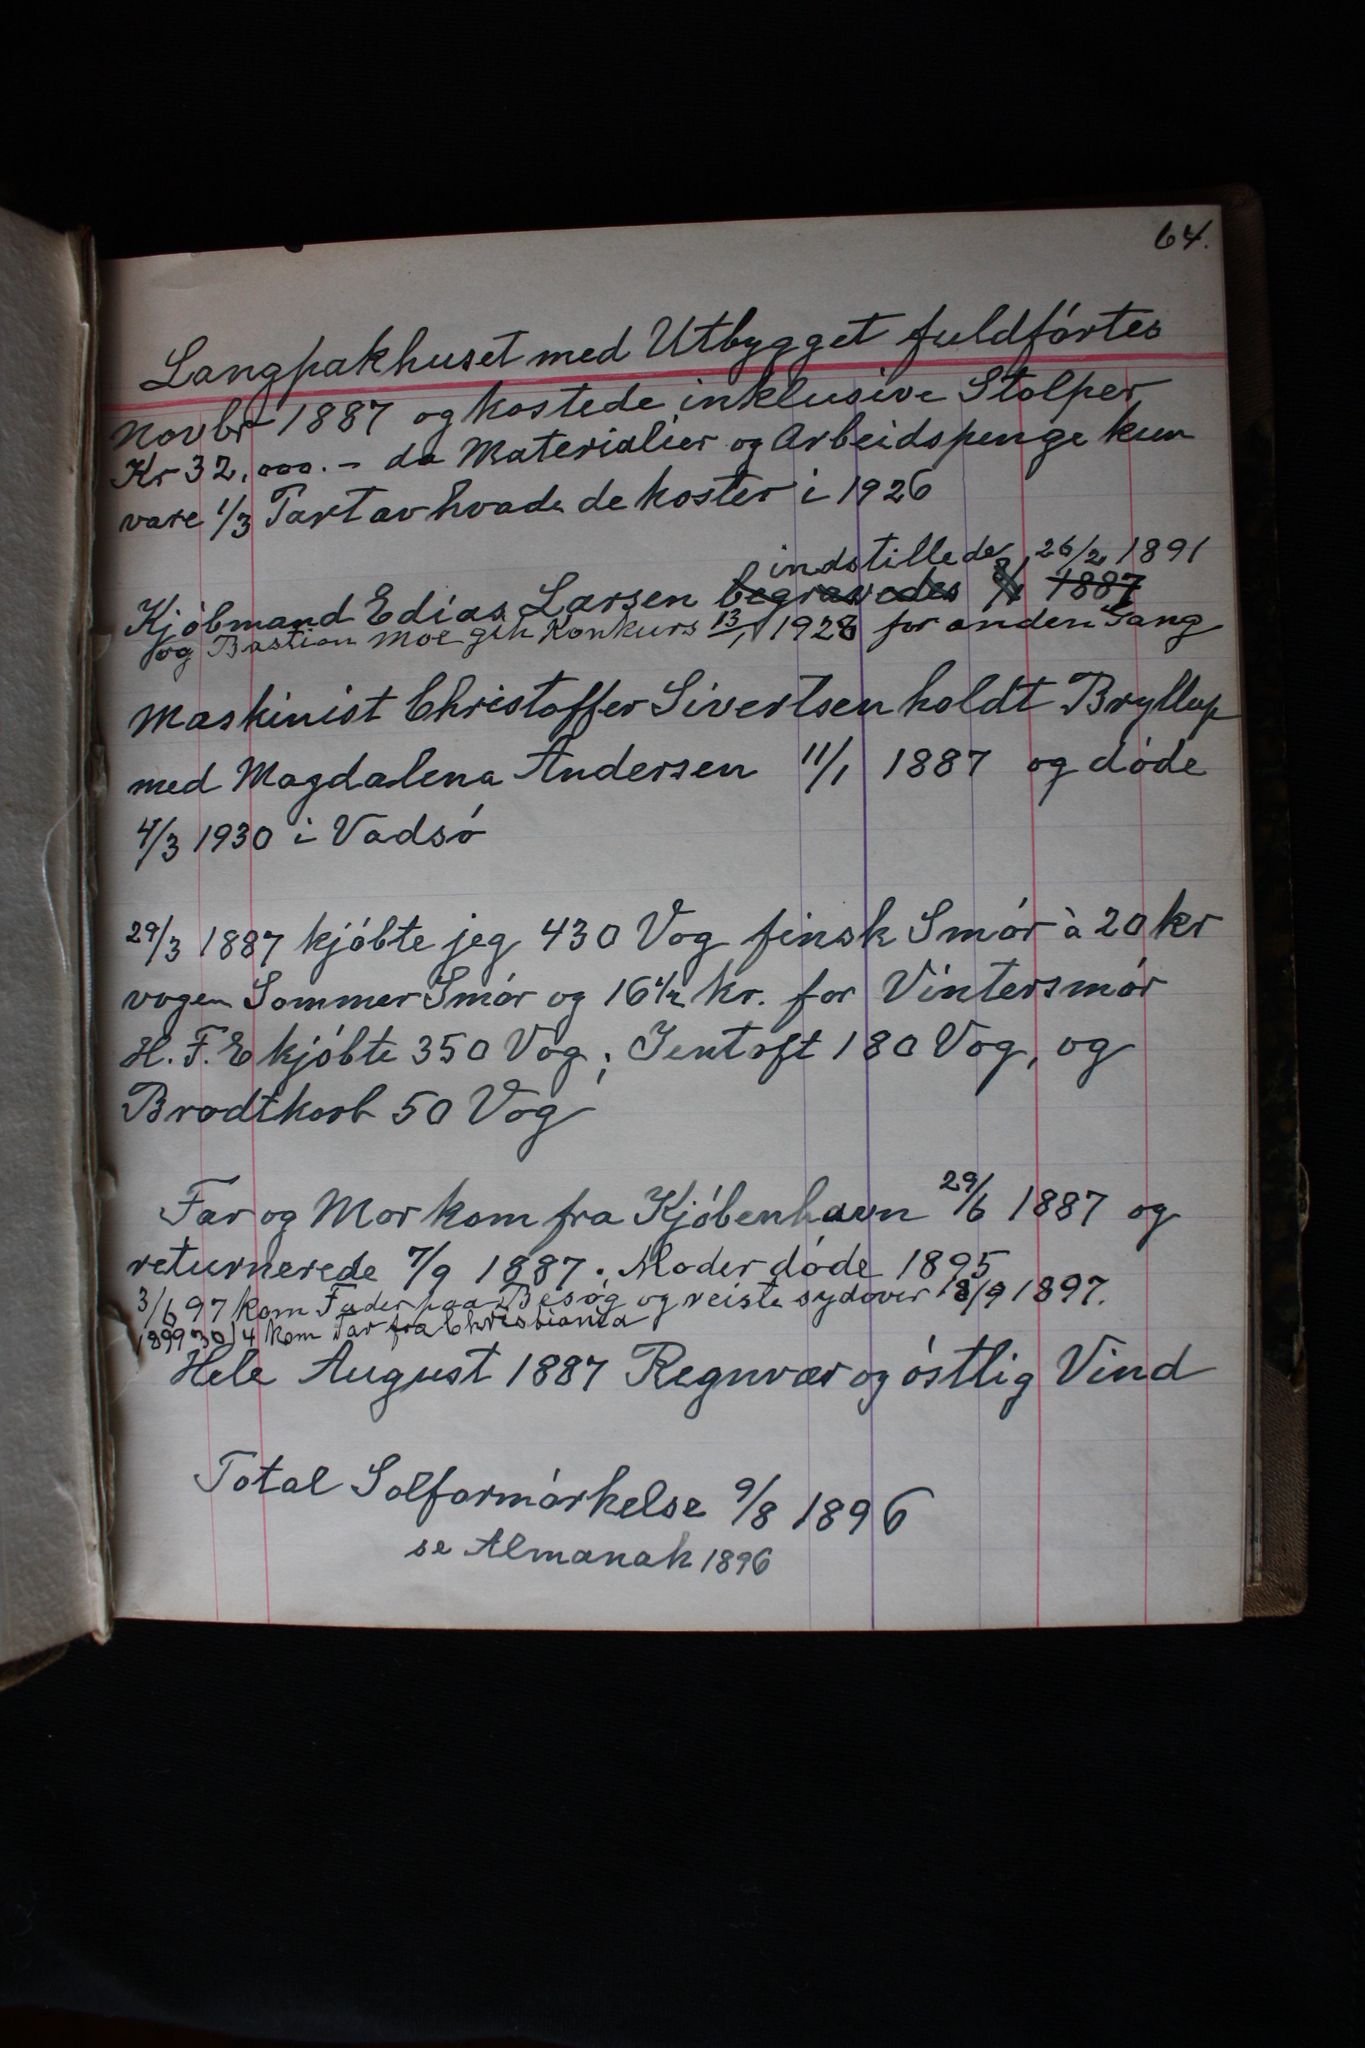 64.
Langpakhuset med Utbygget fuldførtes
Novbr 1887 og kostede inklusive Stolper
Kr 32.000.- da Materialier og Arbeidspenge kun
vare 1/3 Part av hvad de koster i 1926
indstillede 26/2 1891
Kjøbmand Edias Larsen begravedes 1887
og Bastian Moe gik Konkurs 13/1 1928 for anden Gang
Maskinist Christoffer Sivertsen holdt Bryllup
med Magdalena Andersen 11/1 1887 og døde
4/3 1930 i Vadsø
29/3 1887 kjøbte jeg 430 Vog finsk Smør à 20 kr
vogen Sommer Smør og 16 1/2 kr. for Vintersmør
H. F. E kjøbte 350 Vog; Jentoft 180 Vog, og
Brodtkorb 50 Vog
Far og Mor kom fra Kjøbenhavn 29/6 1887 og
returnerede 7/9 1887. Moder døde 1895
3/6 97 kom Fader paa Besøg og reiste sydover 18/9 1897.
1899 30/4 kom Far fra Christiania
Hele August 1887 Regnvær og østlig Vind
Total Solformørkelse 9/8 1896
se Almanak 1896